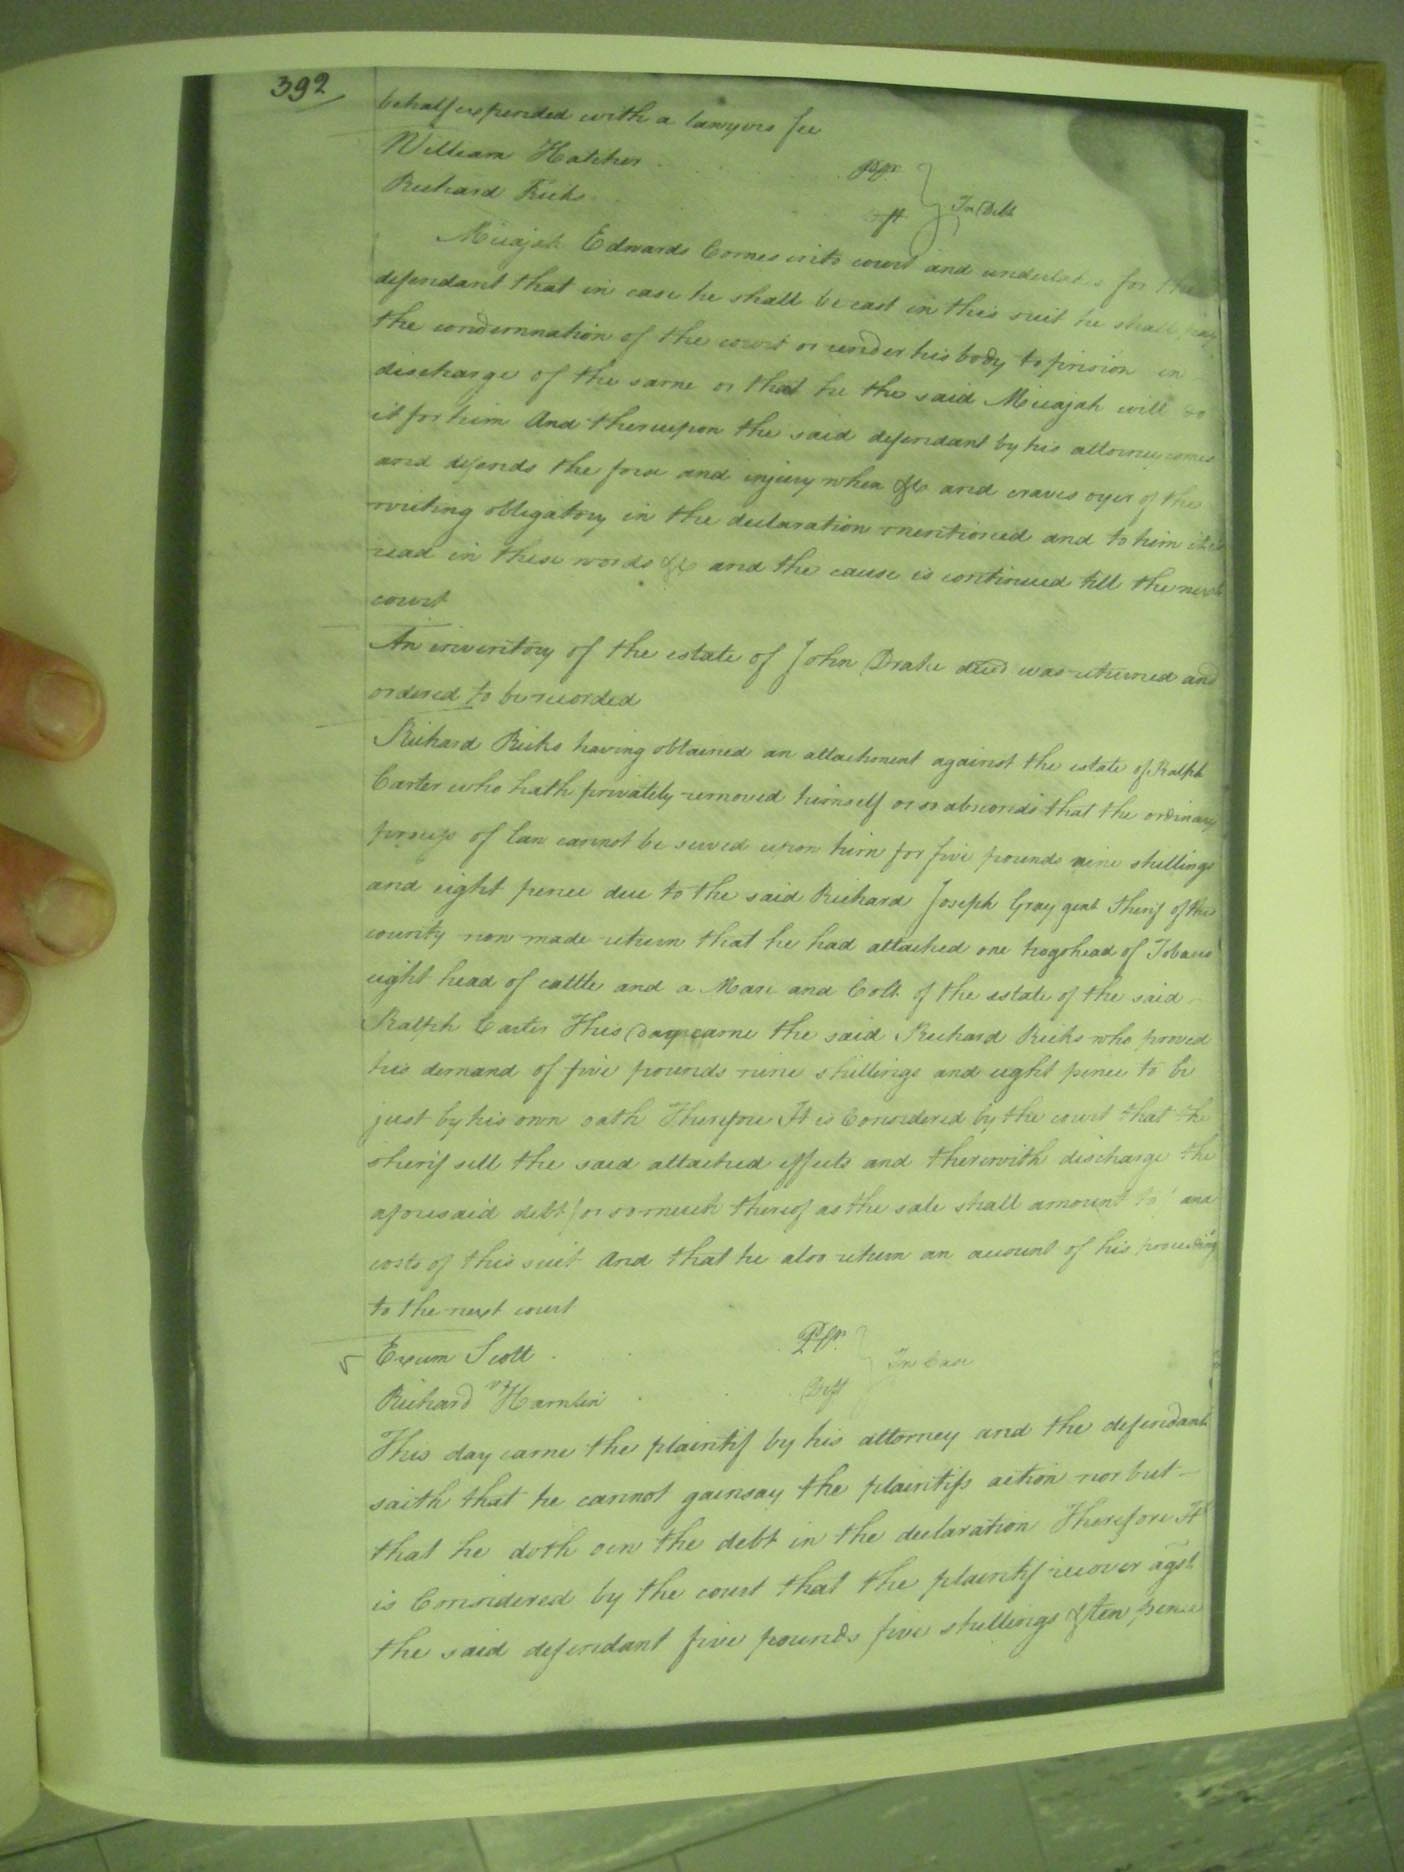 392
behalf expended with a lawyers fee
William Hatcher Pltf
Richard Ricks Deft In Debt
Micajah Edwards Comes into court and undertakes for the
defendant that in case he shall be cast in this suit he shall pay
the condemnation of the court or render his body to prision in
discharge of the same or that he the said Micajah will do
it for him And thereupon the said defendant by his attorney comes
and defends the force and injury when &c and craves oyer of the
writing obligatory in the declaration mentioned and to him it is
read in these words &c and the cause is continued till the next
court
An inventory of the estate of John Drake deced was returned and
ordered to be recorded
Richard Ricks having obtained an attachment against the estate of Ralph
Carter who hath privately removed himself or so absconds that the ordinary
process of law cannot be served upon him for five pounds nine shillings
and eight pence due to the said Richard Joseph Gray gent Sherif of the
county now made return that he had attached one hogshead of Tobacco
eight head of cattle and a Mare and Colt of the estate of the said
Ralph Carter This Day came the said Richard Ricks who proved
his demand of five pounds nine shillings and eight pence to be
just by his own oath Therefore It is Considered by the court that the
sherif sell the said attached effects and therewith discharge the
aforesaid debt (or so much thereof as the sale shall amount to) and
costs of this suit And that he also return an account of his proceedings
to the next court
Exum Scott Pltf
Richard Hamlin Deft In Case
This day came the plaintif by his attorney and the defendant
saith that he cannot gainsay the plaintifs action nor but
that he doth owe the debt in the declaration Therefore It
is Considered by the court that the plaintif recover agst
the said defendant five pounds five shillings & ten pence